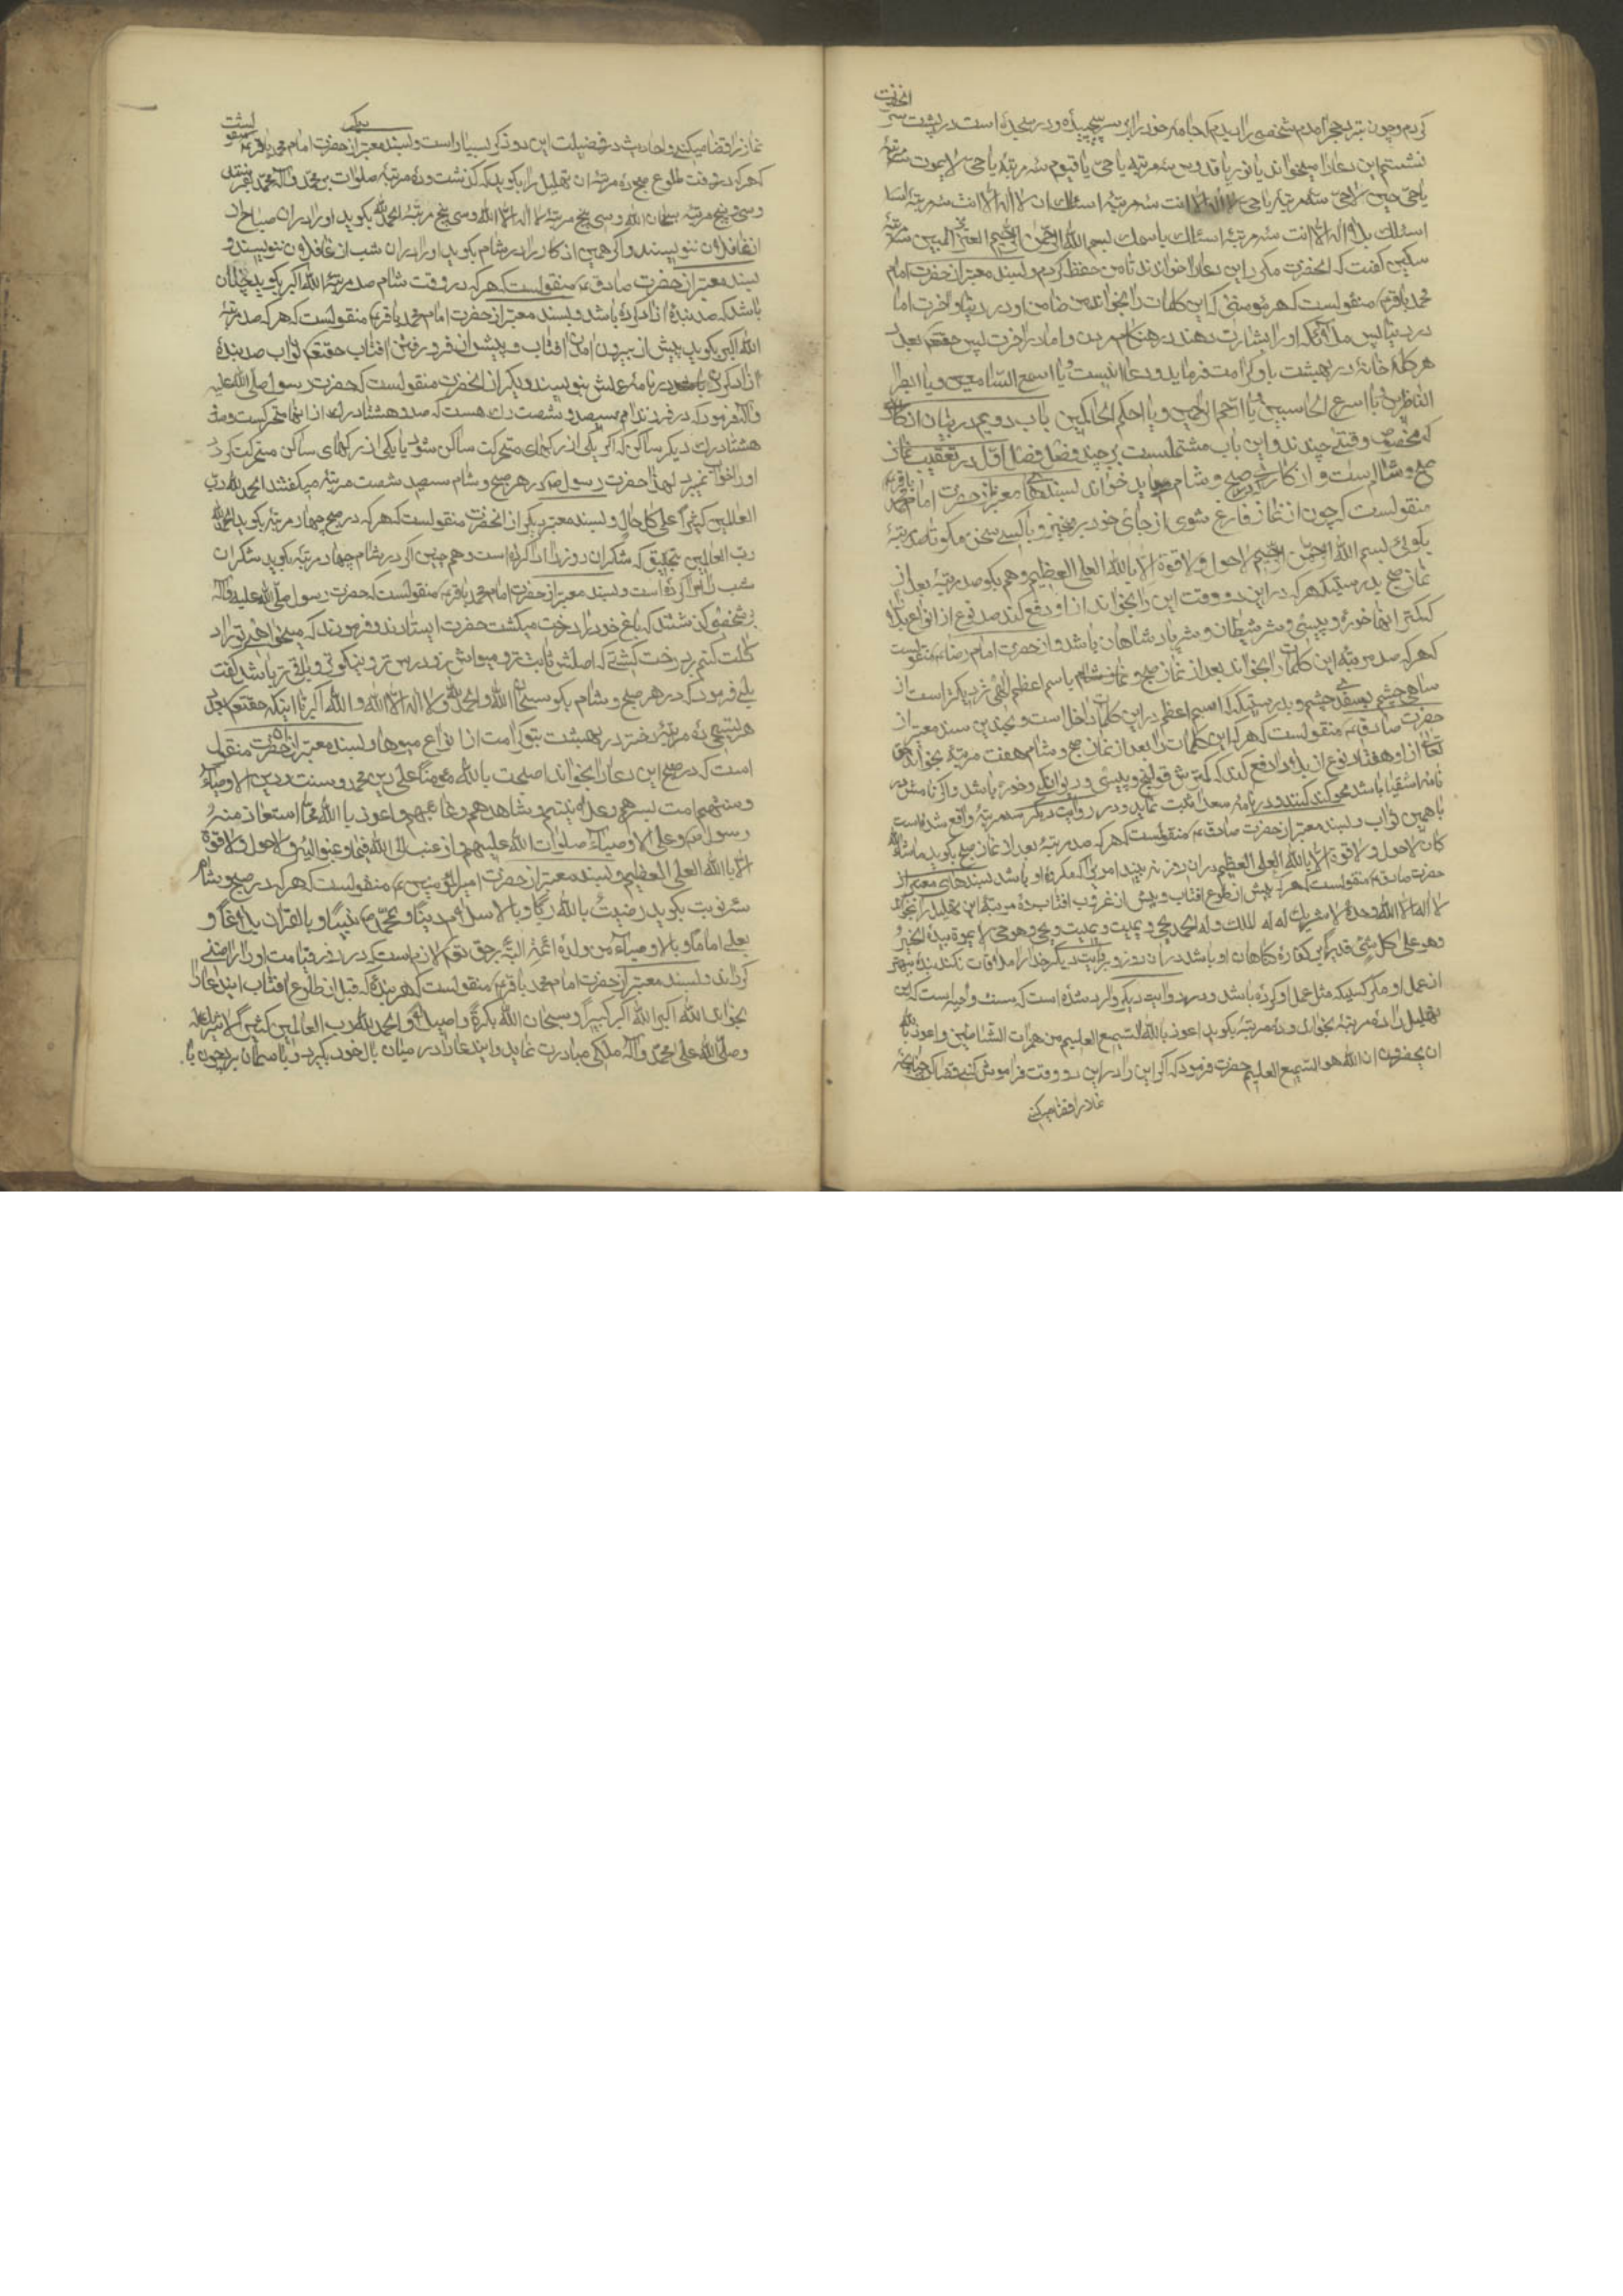 انحضرت
کردم وچون نیز بحجر امدم شخصی را دیدم که جامه خود را بر سر پیچیده ودر سجده است در پشت سر
نشستم این دعا را میخواند یا نور یا قدوس سه مرتبه یا حی یا قیوم سه مرتبه یا حی لا یموت سه مرتبه
یا حی حین لا حی سه مرتبه یا حی لا اله الا انت سه مرتبه اسئلک بان لا اله الا انت سه مرتبه
اسئلک بلا اله الا انت سه مرتبه اسئلک باسمک بسم الله الرحمن الرحیم العزیز المبین سه مرتبه
سکین گفت که انحضرت مکرر این دعا را خواندند تا من حفظ کردم وبسند معتبر از حضرت امام
محمد باقر ع منقولست که هر مؤمنی که این کلمات را بخواند من ضامن او در دنیا واخرت اما
در دنیا پس ملائکه او را بشارت دهند در هنگام مردن واما در اخرت پس حقتعم بعدد
هر کلمه خانه در بهشت باو کرامت فرماید ودعا اینست یا اسمع السامعین ویا ابصر
الناظرین یا اسرع الحاسبین یا ارحم الراحمین ویا احکم الحاکمین باب دویم در بیان اذکار
که مخصوص وقتی چندند واین باب مشتملست بر چند فصل فصل اول در تعقیب نماز
صبح وشام است واذکار که در صبح وشام باید خواند بسندهای معتبر از حضرت امام محمد باقر ع
منقولست که چون از نماز فارغ شوی از جای خود برمخیز وبا کسی سخن مکو تا صد مرتبه
بکوئی بسم الله الرحمن الرحیم لا حول ولا قوة الا بالله العلی العظیم وهم بکو صد مرتبه بعد از
نماز صبح بدرستیکه هر که در این دو وقت این را بخواند از او دفع کند صد نوع از انواع بلا
که کمتر اینها خوره وپیسی وشر شیطان وشر پادشاهان باشد واز حضرت امام رضا ع منقولست
که هر که صد مرتبه این کلمات را بخواند بعد از نماز صبح ونماز شام باسم اعظم الهی نزدیکتر است از
سیاهی چشم بسفیدی چشم وبدرستیکه اسم اعظم در این کلمات داخل است وبچندین سند معتبر از
حضرت صادق ع منقولست که هر که این کلمات را بعد از نماز صبح وشام هفت مرتبه بخواند حق
تعالی از او هفتاد نوع از بلا را دفع کند که کمترش قولنج وپیسی ودیوانگی وخوره باشد واگر نامش در
نامه اشقیا باشد محو کنند ودر نامه سعدا ثبت نمایند ودر روایت دیگر سه مرتبه واقع شده است
با همین ثواب وبسند معتبر از حضرت صادق ع منقولست که هر که صد مرتبه بعد از نماز صبح بکوید ما شاء الله
کان لا حول ولا قوة الا بالله العلی العظیم در ان روز نه بیند امریرا که مکروه او باشد بسندهای معتبر از
حضرت صادق ع منقولست که هر که پیش از طلوع افتاب وپیش از غروب افتاب ده مرتبه این تهلیل را بخواند
لا اله الا الله وحده لا شریک له له الملک وله الحمد یحیی ویمیت ویمیت ویحیی وهو حی لا یموت بیده الخیر
وهو علی کل شئ قدیر این کفاره کناهان او باشد در ان روز وبروایت دیگر خدا را ملاقات نکند بنده بهتر
از عمل او مگر کسیکه مثل عمل او کرده باشد ودر روایت دیگر وارد شده است که سنت واجبه است که این
تهلیل را ده مرتبه بخوانی وده مرتبه بکوید اعوذ بالله السمیع العلیم من همزات الشیاطین واعوذ بالله
ان یحضرون ان الله هو السمیع العلیم حضرت فرمود که اگر این را در این دو وقت فراموش کنی قضا کن چنانچه
نماز را قضا میکنی
نماز را قضا میکنی واحادیث در فضیلت این دو ذکر بسیار است وبسند معتبر از حضرت امام محمد باقر ع منقولست
که هر که در وقت طلوع صبح ده مرتبه ان تهلیل را بکوید که گذشت وده مرتبه صلوات بر محمد وآله محمد بفرستد
وسی وپنج مرتبه سبحان الله وسی پنج مرتبه لا اله الا الله وسی پنج مرتبه الحمد لله بکوید او را در ان صباح از
از غافلان ننویسند واگر همین اذکار را در شام بکوید او را در ان شب از غافلان ننویسند و
بسند معتبر از حضرت صادق ع منقولست که هر که در وقت شام صد مرتبه الله اکبر بکوید چنان
باشد که صد بنده ازاد کرده باشد وبسند معتبر از حضرت امام محمد باقر ع منقولست که هر که صد مرتبه
الله اکبر بکوید پیش از بیرون امدن افتاب وپیش از فرو رفتن افتاب حقتعم ثواب صد بنده
ازاد کردن در نامه عملش بنویسد ودیگر از انحضرت منقولست که حضرت رسول صلی الله علیه
وآله فرمود که در فرزند ادم سیصد وشصت رک هست که صد وهشتاد رک از انها متحرکست وصد
هشتاد رک دیگر ساکن که اگر یکی از رکهای متحرکت ساکن شود یا یکی از رکهای ساکن متحرکت کردد
او را خواب نمیبرد لهذا حضرت رسول ص در هر صبح وشام سیصد شصت مرتبه میکفتند الحمد لله رب
العالمین کثیرا علی کل حال وبسند معتبر دیگر از انحضرت منقولست که هر که در صبح چهار مرتبه بکوید الحمد لله
رب العالمین بتحقیق که شکر ان روز را ادا کرده است وهم چنین اگر در شام چهار مرتبه بکوید شکر ان
شب را ادا کرده است وبسند معتبر از حضرت امام محمد باقر ع منقولست که حضرت رسول صلی الله علیه وآله
بر شخصی گذشتند که باغ خود را درخت میکشت حضرت ایستادند وفرمودند که میخواهی ترا
دلالت کنم بر درخت کشتی که اصلش ثابت تر ومیواش زودرس تر ونیکوتر وباقی تر باشد گفت
بلی فرمود که در هر صبح وشام بکو سبحان الله والحمد لله ولا اله الا الله والله اکبر تا اینکه حقتعم بعدد
هر تسبیحی ده مرتبه درخت در بهشت بتو کرامت از انواع میوها وبسند معتبر از انحضرت منقول
است که در صبح این دعا را بخواند اصبحت بالله مؤمنا علی دین محمد وسنته ودین الاوصیاء
وسنتهم امنت بسرهم وعلانیتهم وشاهدهم وغائبهم واعوذ بالله مما استعاذ منه
رسول ص وعلی والاوصیاء صلوات الله علیهم وارغب الی الله فیما رغبوا الیه ولا حول ولا قوة
الا بالله العلی العظیم وبسند معتبر از حضرت امیر المؤمنین ع منقولست که هر که در صبح وشام
سه نوبت بکوید رضیت بالله ربا وبالاسلام دینا وبمحمد ص نبیا وبالقران بلاغا و
بعلی اماما وبالاوصیاء من ولده ائمة البته بر حق تعم لازم است که در روز قیامت او را راضی
گرداند وبسند معتبر از حضرت امام محمد باقر ع منقولست که هر بنده که قبل از طلوع افتاب ایندعا را
بخواند الله اکبر الله اکبر کبیرا وسبحان الله بکرة واصیلا والحمد لله رب العالمین کثیرا لا شریک له
وصلی الله علی محمد وآله ملکی مبادرت نماید وایندعا را در میان بال خود بگیرد وبا سمان برد چون با